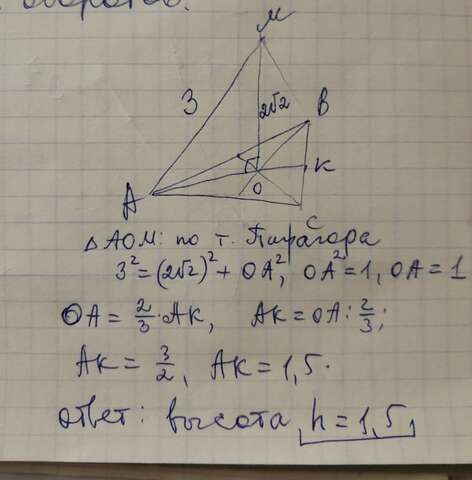 M
3
2√2
B
K
A
O
C
△AOM: по т. Пифагора
3² = (2√2)² + OA², OA² = 1, OA = 1
OA = 2/3 · AK, AK = OA : 2/3;
AK = 3/2, AK = 1,5.
ответ: высота, h = 1,5,